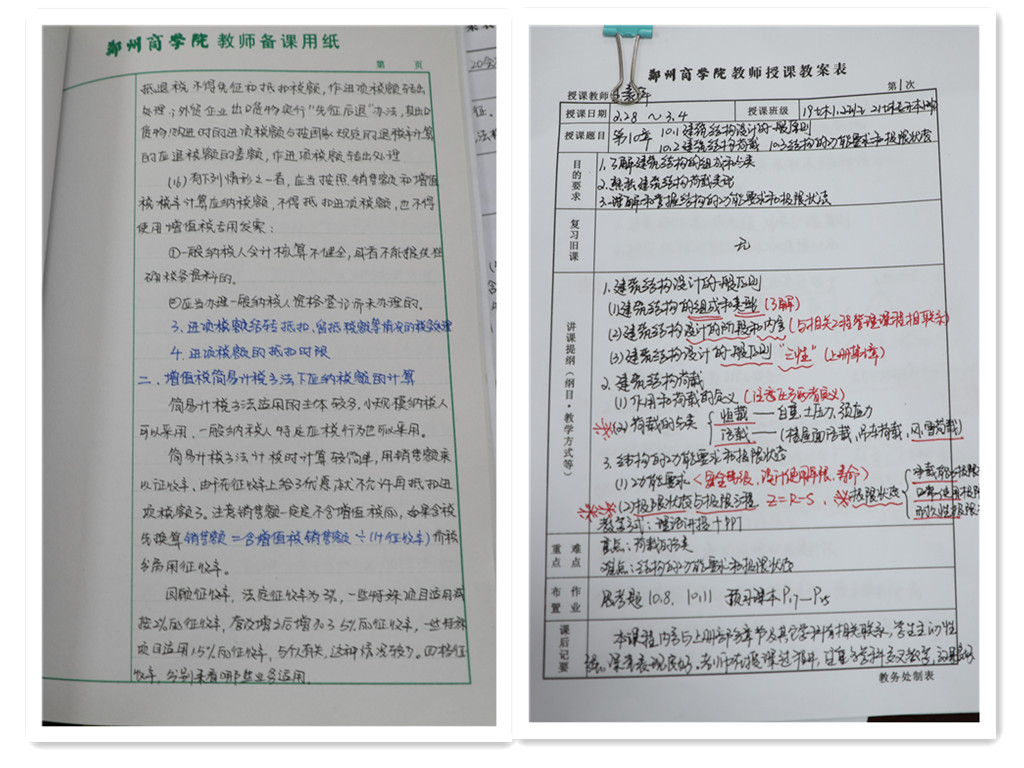 郑州商学院 教师备课用纸
第 页
抵退税不得免征和抵扣税额,作进项税额转出
处理;外贸企业出口货物实行“先征后退”办法,
货物购进时的进项税额与按国家规定的退税率计算
的应退税额的差额,作进项税额转出处理
(16)有下列情形之一者,应当按照销售额和增值
税税率计算应纳税额,不得抵扣进项税额,也不得
使用增值税专用发票:
①一般纳税人会计核算不健全,或者不能提供准
确税务资料的。
②应当办理一般纳税人资格登记而未办理的。
3.进项税额结转抵扣、留抵税额等情况的税务处理
4.进项税额的抵扣时限
二、增值税简易计税方法下应纳税额的计算
简易计税方法适用的主体较多,小规模纳税人
可以采用,一般纳税人特定应税行为也可以采用。
简易计税方法计税时计算较简单,用销售额乘
以征收率。由于在征收率上给予优惠,故不允许再抵扣进
项税额了。注意销售额一定是不含增值税的,如果含税
先换算 销售额=含增值税销售额÷(1+征收率) 价税
分离用征收率。
回顾征收率,法定征收率为3%,一些特殊项目适用减
按2%的征收率,营改增之后增加了5%的征收率,一些特殊
项目适用1.5%的征收率,与个人有关,这种情况较少。四档征
收率,分别来看哪些业务适用。
郑州商学院教师授课教案表
第1次
授课教师
授课日期 2.28 ~ 3.4 授课班级
授课题目 第10章 10.1 建筑结构设计的一般原则
10.2 建筑结构荷载 10.3 结构的功能要求和极限状态
目的要求
1.了解建筑结构的组成和分类
2.熟悉建筑结构荷载类型
3.理解和掌握结构的功能要求和极限状态
复习旧课
无
讲课提纲(纲目·教学方式等)
1.建筑结构设计的一般原则
(1)建筑结构的组成和类型(了解)
(2)建筑结构设计的阶段和内容(与相关工程管理课程相联系)
(3)建筑结构设计的一般原则 “三性”
2.建筑结构荷载
(1)作用和荷载的定义
(2)荷载的分类 恒载——自重、土压力、预应力
活载——(楼屋面活载、吊车荷载、风、雪荷载)
3.结构的功能要求和极限状态
(1)功能要求<安全等级、设计使用年限、寿命>
(2)极限状态与极限方程 Z=R-S, 极限状态
承载能力极限
正常使用极限
耐久性极限
教学方式:理论讲授+PPT
重点 难点
重点:荷载的分类
难点:结构的功能要求和极限状态
布置 作业
思考题10.8、10.11 预习课本P17—P25
课后记要
本课程内容与上册部分章节及其它学科有相关联系,学生主动性
强,课堂表现良好。
教务处制表